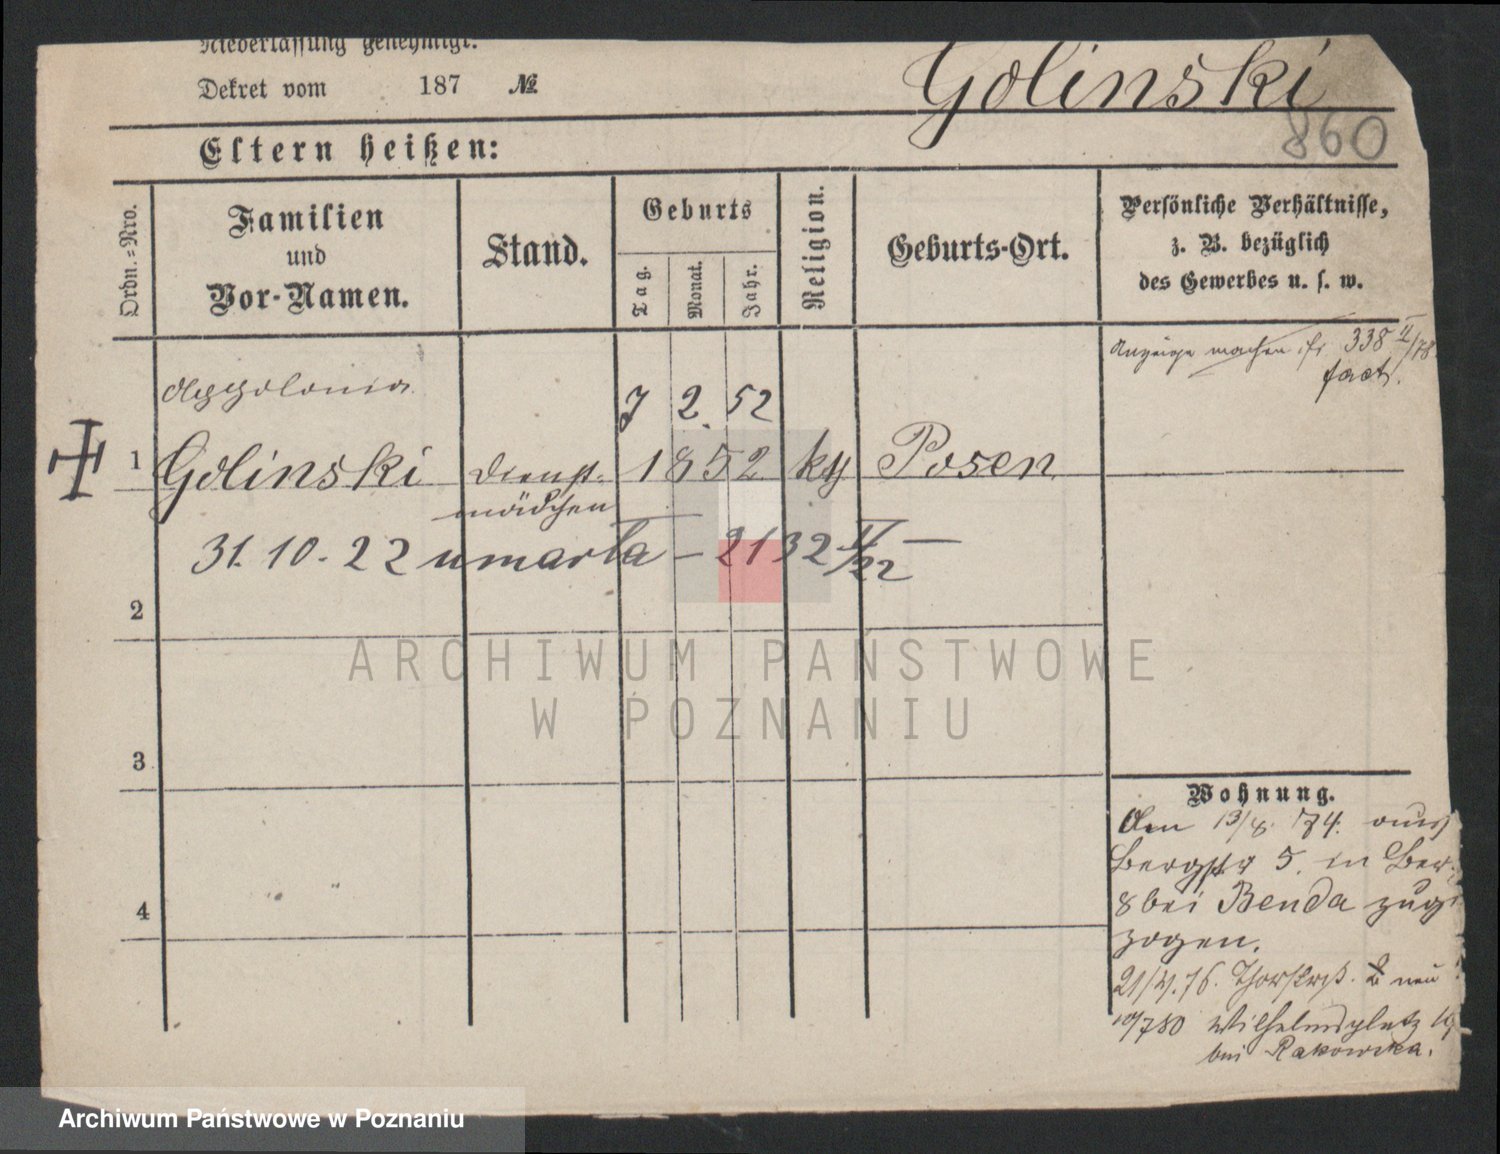 Niederlassung genehmigt.
Dekret vom 187 №
Golinski
860
Eltern heißen:
Ordn.-Nro.
Familien
und
Vor-Namen.
Stand.
Geburts
Tag.
Monat.
Jahr.
Religion.
Geburts-Ort.
Persönliche Verhältnisse,
z. B. bezüglich
des Gewerbes u. s. w.
Anzeige machen 338 II/78
fact.
Appolonia
7 2. 52
1 Golinski Dienst- 1852 kth Posen
mädchen
31. 10. 22 umarła — 2132 II/22 —
2
3
4
Wohnung.
Den 13/8. 74. aus
Bergstr 5. in Ber
8 bei Benda zuge
zogen.
21/4. 76. 2 neu
10/7 80 Wilhelmsplatz
bei Rakowska.
ARCHIWUM PAŃSTWOWE
W POZNANIU
Archiwum Państwowe w Poznaniu